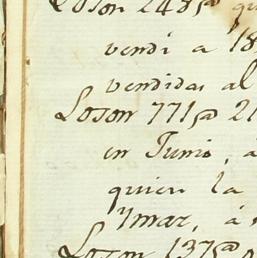 Loson 2485@
vendi a 18
vendidas al
Loson 771@ 21
en Junio, á
quien la
Ymaz, á
Loson 137@